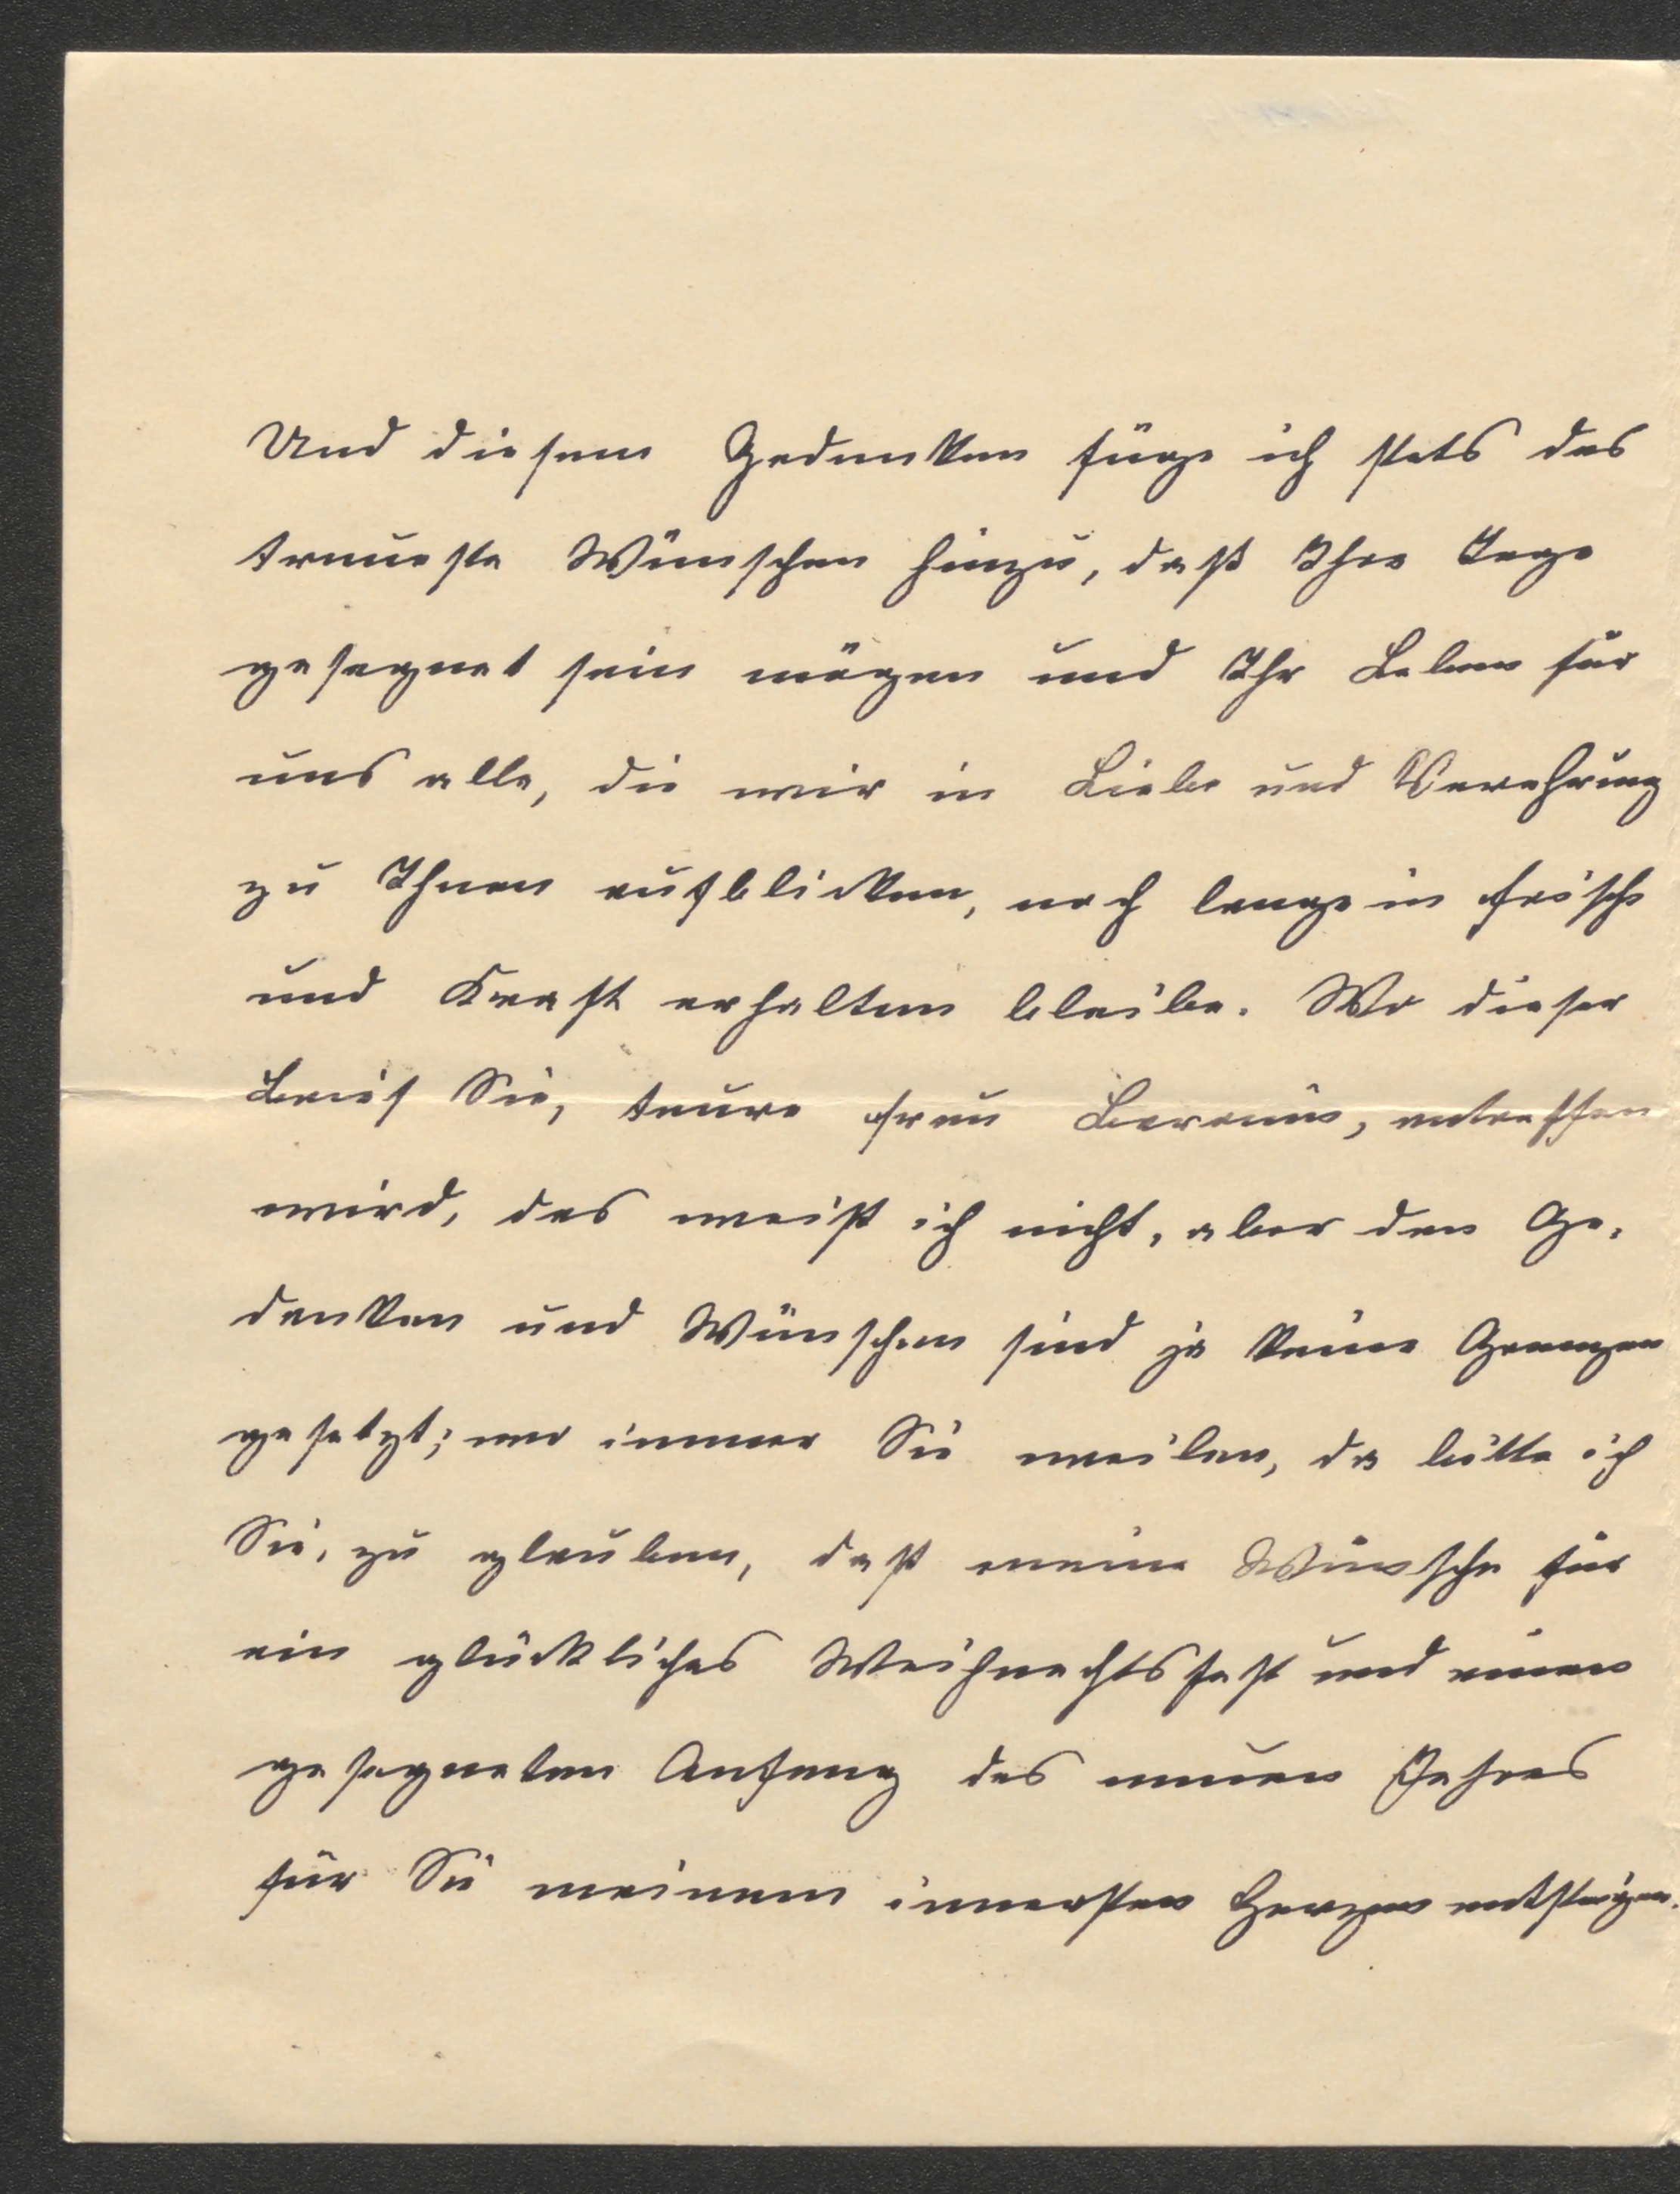 Und diesem Gedenken füge ich stets das
treueste Wünschen hinzu, daß Ihre Tage
gesegnet sein mögen und Ihr Leben für
uns alle, die wir in Liebe und Verehrung
zu Ihnen aufblicken, noch lange in Frische
und Kraft erhalten bleibe. Wo dieser
Brief Sie, teure Frau Baronin, antreffen
wird, das weiß ich nicht, aber den Ge-
danken und Wünschen sind ja keine Grenzen
gesetzt; wo immer Sie weilen, da bitte ich
Sie, zu glauben, daß meine Wünsche für
ein glückliches Weihnachtsfest und einen
gesegneten Anfang des neuen Jahres
für Sie meinem innersten Herzen entsteigen.